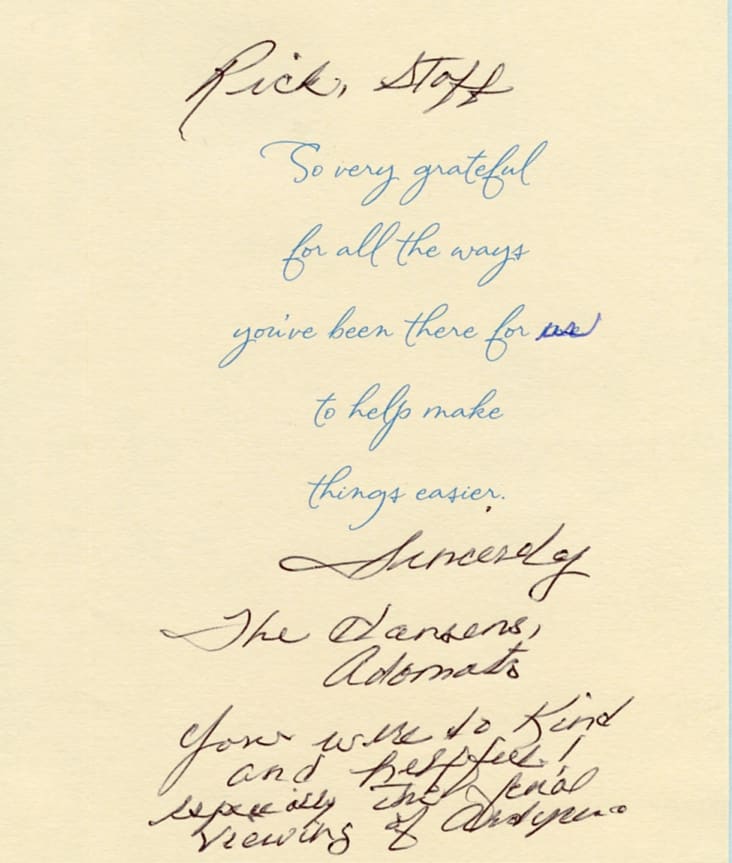 Rick, Staff
So very grateful
for all the ways
you've been there for us
to help make
things easier.
Sincerely
The Hansens,
Adomats
You were so kind
and helpful!
especially the final
viewing of